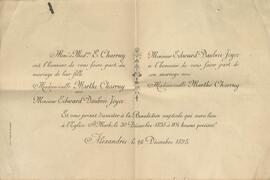 Mons. & Mad.me E. Charruy
ont l'honneur de vous faire part du
mariage de leur fille
Mademoiselle Marthe Charruy
avec
Monsieur Edward Daubrée Joyce
Monsieur Edward Daubrée Joyce
a l'honneur de vous faire part de
son mariage avec
Mademoiselle Marthe Charruy
Et vous prient d'assister à la Bénédiction nuptiale qui aura lieu
à l'Eglise St Mark le 30 Décembre 1895 à
Alexandrie le Décembre 1895.